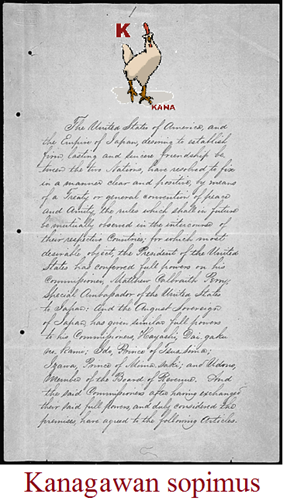 K
KANA
The United States of America, and
the Empire of Japan, desiring to establish
firm, lasting and sincere friendship be
tween the two Nations, have resolved to fix
in a manner clear and positive, by means
of a Treaty or general convention of peace
and Amity, the rules which shall in future
be mutually observed in the intercourse of
their respective Countries; for which most
desirable object, the President of the United
States has conferred full powers on his
Commissioner, Matthew Calbraith Perry,
Special Ambassador of the United States
to Japan: And the August Sovereign
of Japan, has given similar full powers
to his Commissioners, Hayashi, Dai gaku
no kami; Ido, Prince of Tsus sima;
Izawa, Prince of Mima saki; and Udono,
Member of the Board of Revenue. And
the said Commissioners after having exchanged
their said full powers, and duly considered the
premises, have agreed to the following Articles.
Kanagawan sopimus